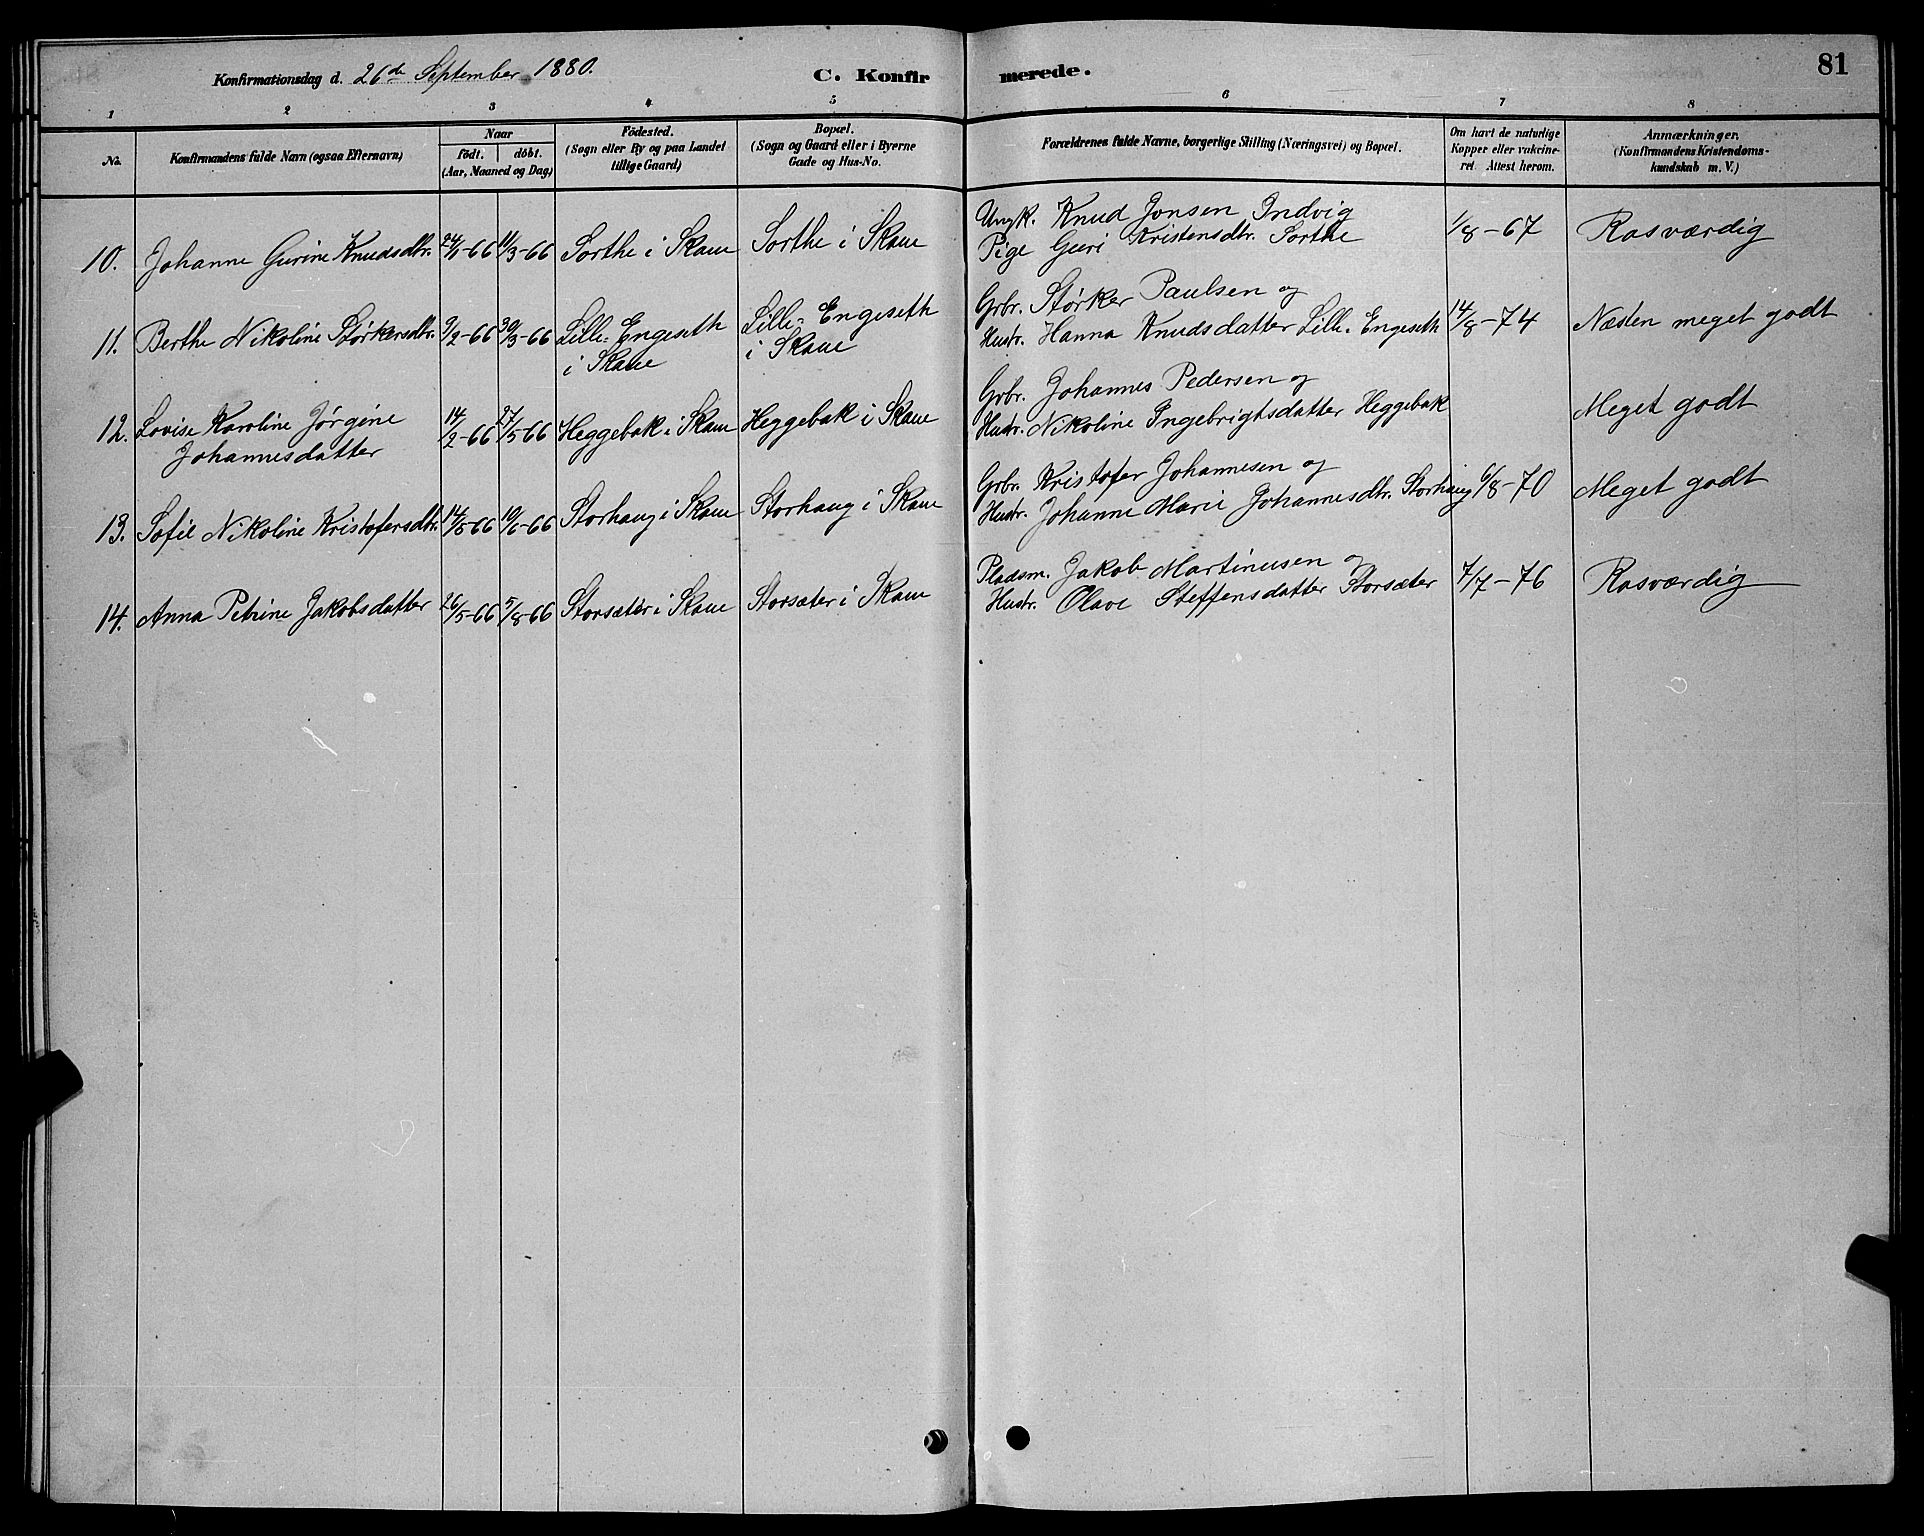 Konfirmationsdag d. 26de September 1880. C. Konfirmerede. 81
1 2 3 4 5 6 7 8
No. Konfirmandens fulde Navn (ogsaa Efternavn) Naar født. døbt. (Aar, Maaned og Dag) Fødested. (Sogn eller By og paa Landet tillige Gaard) Bopæl. (Sogn og Gaard eller i Byerne Gade og Hus-No. Forældrenes fulde Navne, borgerlige Stilling (Næringsvei) og Bopæl. Om havt de naturlige Kopper eller vakcineret. Attest herom. Anmærkninger. (Konfirmandens Kristendomskundskab m. V.)
10. Johanne Gurine Knudsdtr. 11/3-66 Sorthe i Skaue Sorthe i Skaue Ungk. Knud Jonsen Indvig 1/8-67 Rosværdig
Pige Guri Kristensdtr. Sorthe
11. Berthe Nikoline Størkersdtr. 9/2-66 30/3-66 Lille-Engeseth Lille-Engeseth Grbr. Størker Paulsen og 14/8-74 Næsten meget godt
i Skaue i Skaue Hustr. Hanna Knudsdatter Lille-Engeseth
12. Lovise Karoline Jørgine 14/2-66 27/5-66 Heggebak i Skaue Heggebak i Skaue Grbr. Johannes Pedersen og Meget godt
Johannesdatter Hustr. Nikoline Ingebrigtsdatter Heggebak
13. Sofie Nikoline Kristofersdtr. 14/5-66 10/6-66 Storhaug i Skaue Storhaug i Skaue Grbr. Kristofer Johannesen og 6/8-70 Meget godt
Hustr. Johanne Marie Johannesdtr. Storhaug
14. Anna Petrine Jakobsdatter 26/5-66 5/8-66 Storsæter i Skaue Storsæter i Skaue Pladsm. Jakob Martinusen og 7/7-76 Rosværdig
Hustr. Olave Steffensdatter Storsæter